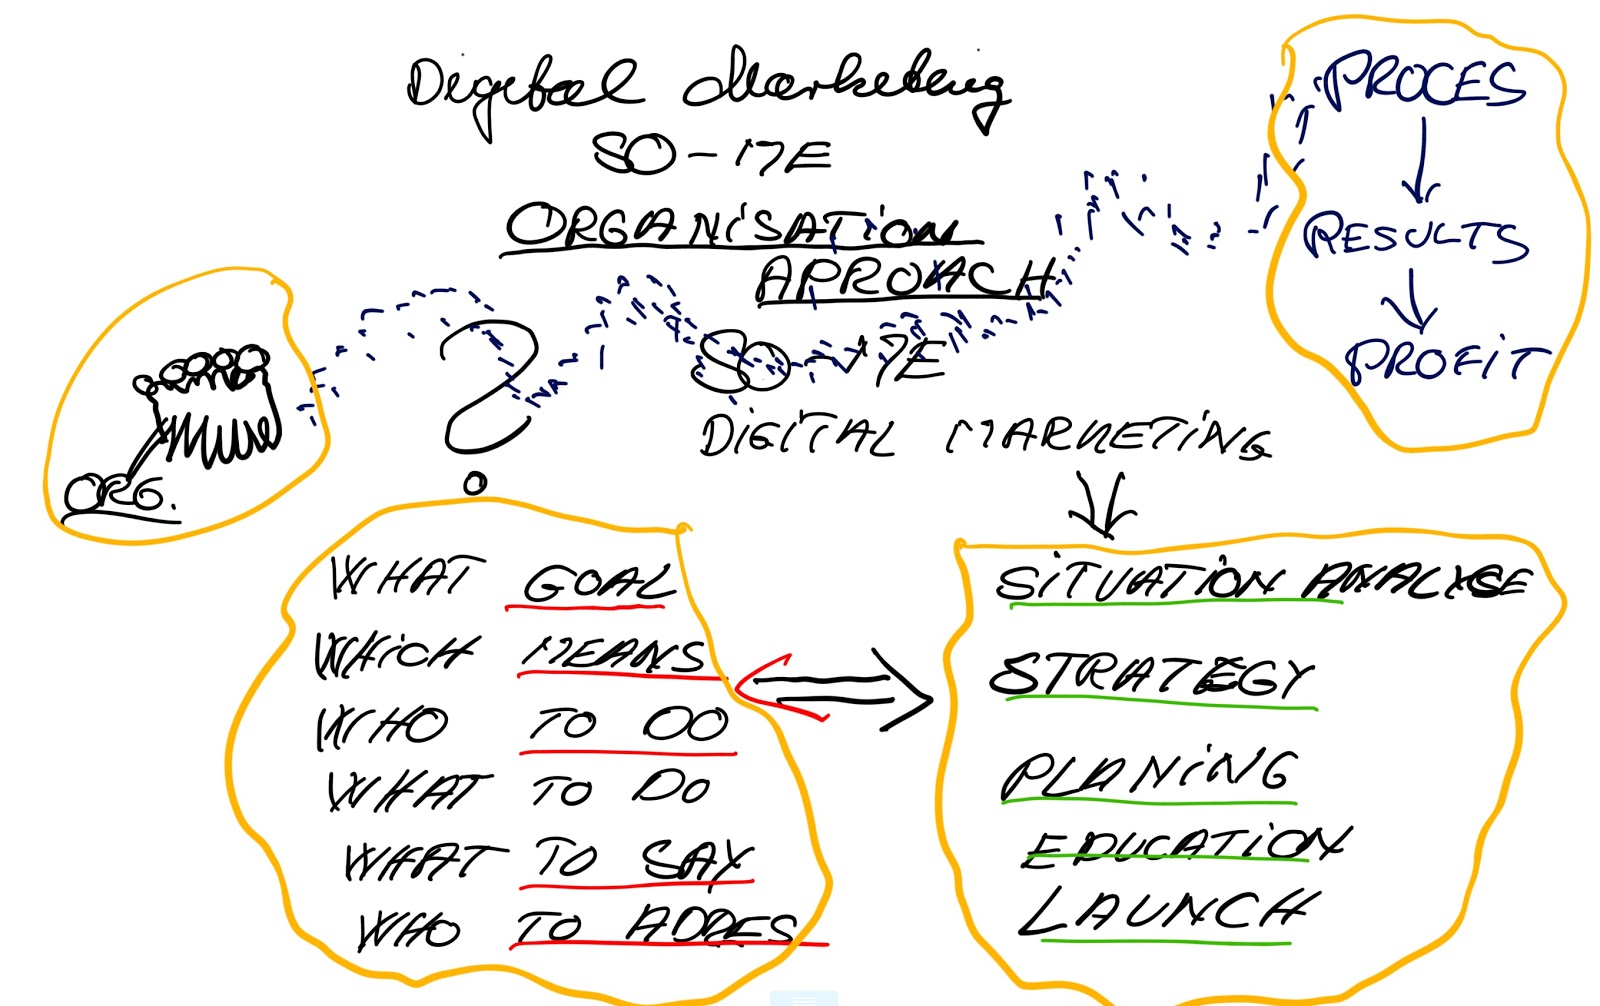 Digital Marketing
SO-17E
ORGANISATION
APROACH
SO-17E
DIGITAL MARKETING
PROCES
RESULTS
PROFIT
ORG.
?
WHAT GOAL
WHICH MEANS
WHO TO DO
WHAT TO DO
WHAT TO SAY
WHO TO ADDRES
SITUATION ANALYSE
STRATEGY
PLANING
EDUCATION
LAUNCH